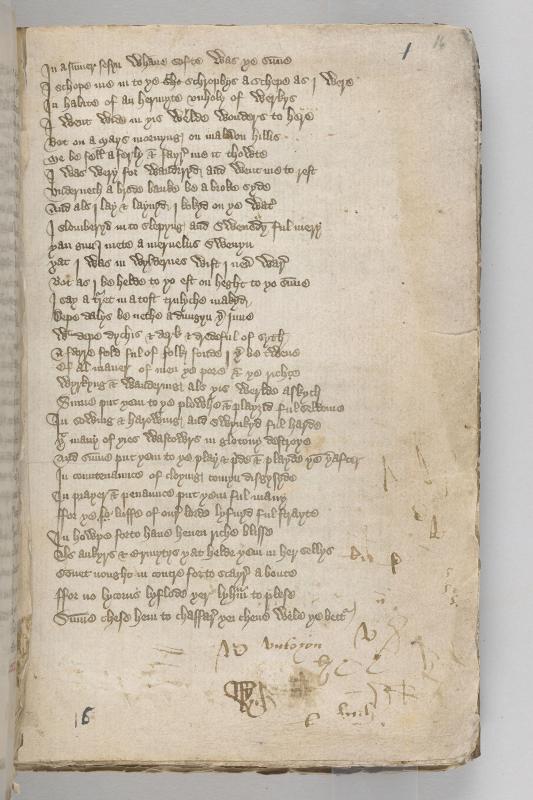 1 16
In a sumer sesyn whane softe was ye sunne
I schope me in to ye schrophys a schepe as I were
In habite of an hermyte unholy of werkys
I went wide in yis werlde wonders to here
Bot on a mays mornyng on malvern hillis
Me be fell a ferly & fayr me it thowte
I was wery for wandryd and went me to rest
Undernech a brode banke be a broke syde
And als I lay & layngd I lokyd on ye wat
I slomberyd in to slepyng and swenyd ful mery
yan gun I mete a mervelus swenyn
yat I was in wyldernes wist I nev war
Bot as I be helde to yo est on heght to ye sunne
I say a in a toft trulyche makyd
depe dalys be neche a dungyn y inne
Wt depe dychis & derk & dredeful of syth
A fayre feld ful of folk fonde I y be twene
Of al maner of men ye pore & ye riche
Wyrkyng & wandering als yis werlde askyth
Summe put yem to ye plowhe & playd ful seldome
In sowing & harowing and swynkyd ful harde
y many of yies wastowrs in glotony destroye
And summe put yem to ye play & pde & playde ye yafter
In countenaunce of cloying comyn disgysyde
In prayer & penaunce put yem ful many
ffor ye luffe of our lorde lyfuyd ful strayte
In howpe forto have heven riche blisse
Als ankyrs & ermytys yat helde yem in her sellys
Covet nought in contre forto stayr a boute
ffor no lycorus lyflode yer lykam to plese
Summe chese hem to chaffar yei cheve wele ye bett
16